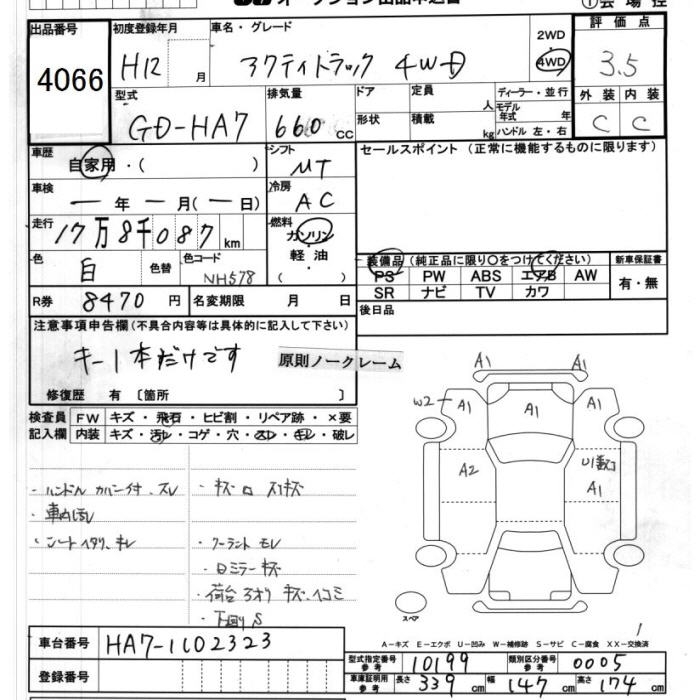 オークション出品申込書
①会場控
出品番号
4066
初度登録年月
H12 月
車名・グレード
アクティトラック 4WD
2WD
4WD
評価点
3.5
型式
GD-HA7
排気量
660 cc
ドア
定員 人
形状
積載 kg
ディーラー・並行
モデル年式 年
ハンドル 左・右
外装 内装
C C
車歴
自家用・( )
シフト
MT
車検
― 年 ― 月(― 日)
冷房
AC
走行
17万8千087 km
燃料
ガソリン
軽油
( )
色
白
色替
色コード
NH578
R券 8470 円
名変期限 月 日
セールスポイント(正常に機能するものに限ります)
装備品(純正品に限り○をつけてください)
PS PW ABS エアB AW
SR ナビ TV カワ
新車保証書
有・無
後日品
注意事項申告欄(不具合内容等は具体的に記入して下さい)
キー1本だけです
修復歴 有〔箇所 〕
原則ノークレーム
検査員記入欄
FW キズ・飛石・ヒビ割・リペア跡・×要
内装 キズ・汚レ・コゲ・穴・スレ・キレ・破レ
・ハンドルカバー付、スレ
・車内汚レ
・シートヘタリ、キレ
・キズ
・クーラントモレ
・ロミラーキズ
・荷台アオリキズ、ヘコミ
・下回りS
A1 A1
W2 A1 A1 A1
A2 U1
A1
A1 A1
スペア
A-キズ E-エクボ U-凹み W-補修跡 S-サビ C-腐食 XX-交換済
車台番号
HA7-1102323
登録番号
型式指定番号 参考
10199
類別区分番号 参考
0005
車庫証明用 参考
長さ 339 cm
幅 147 cm
高さ 174 cm